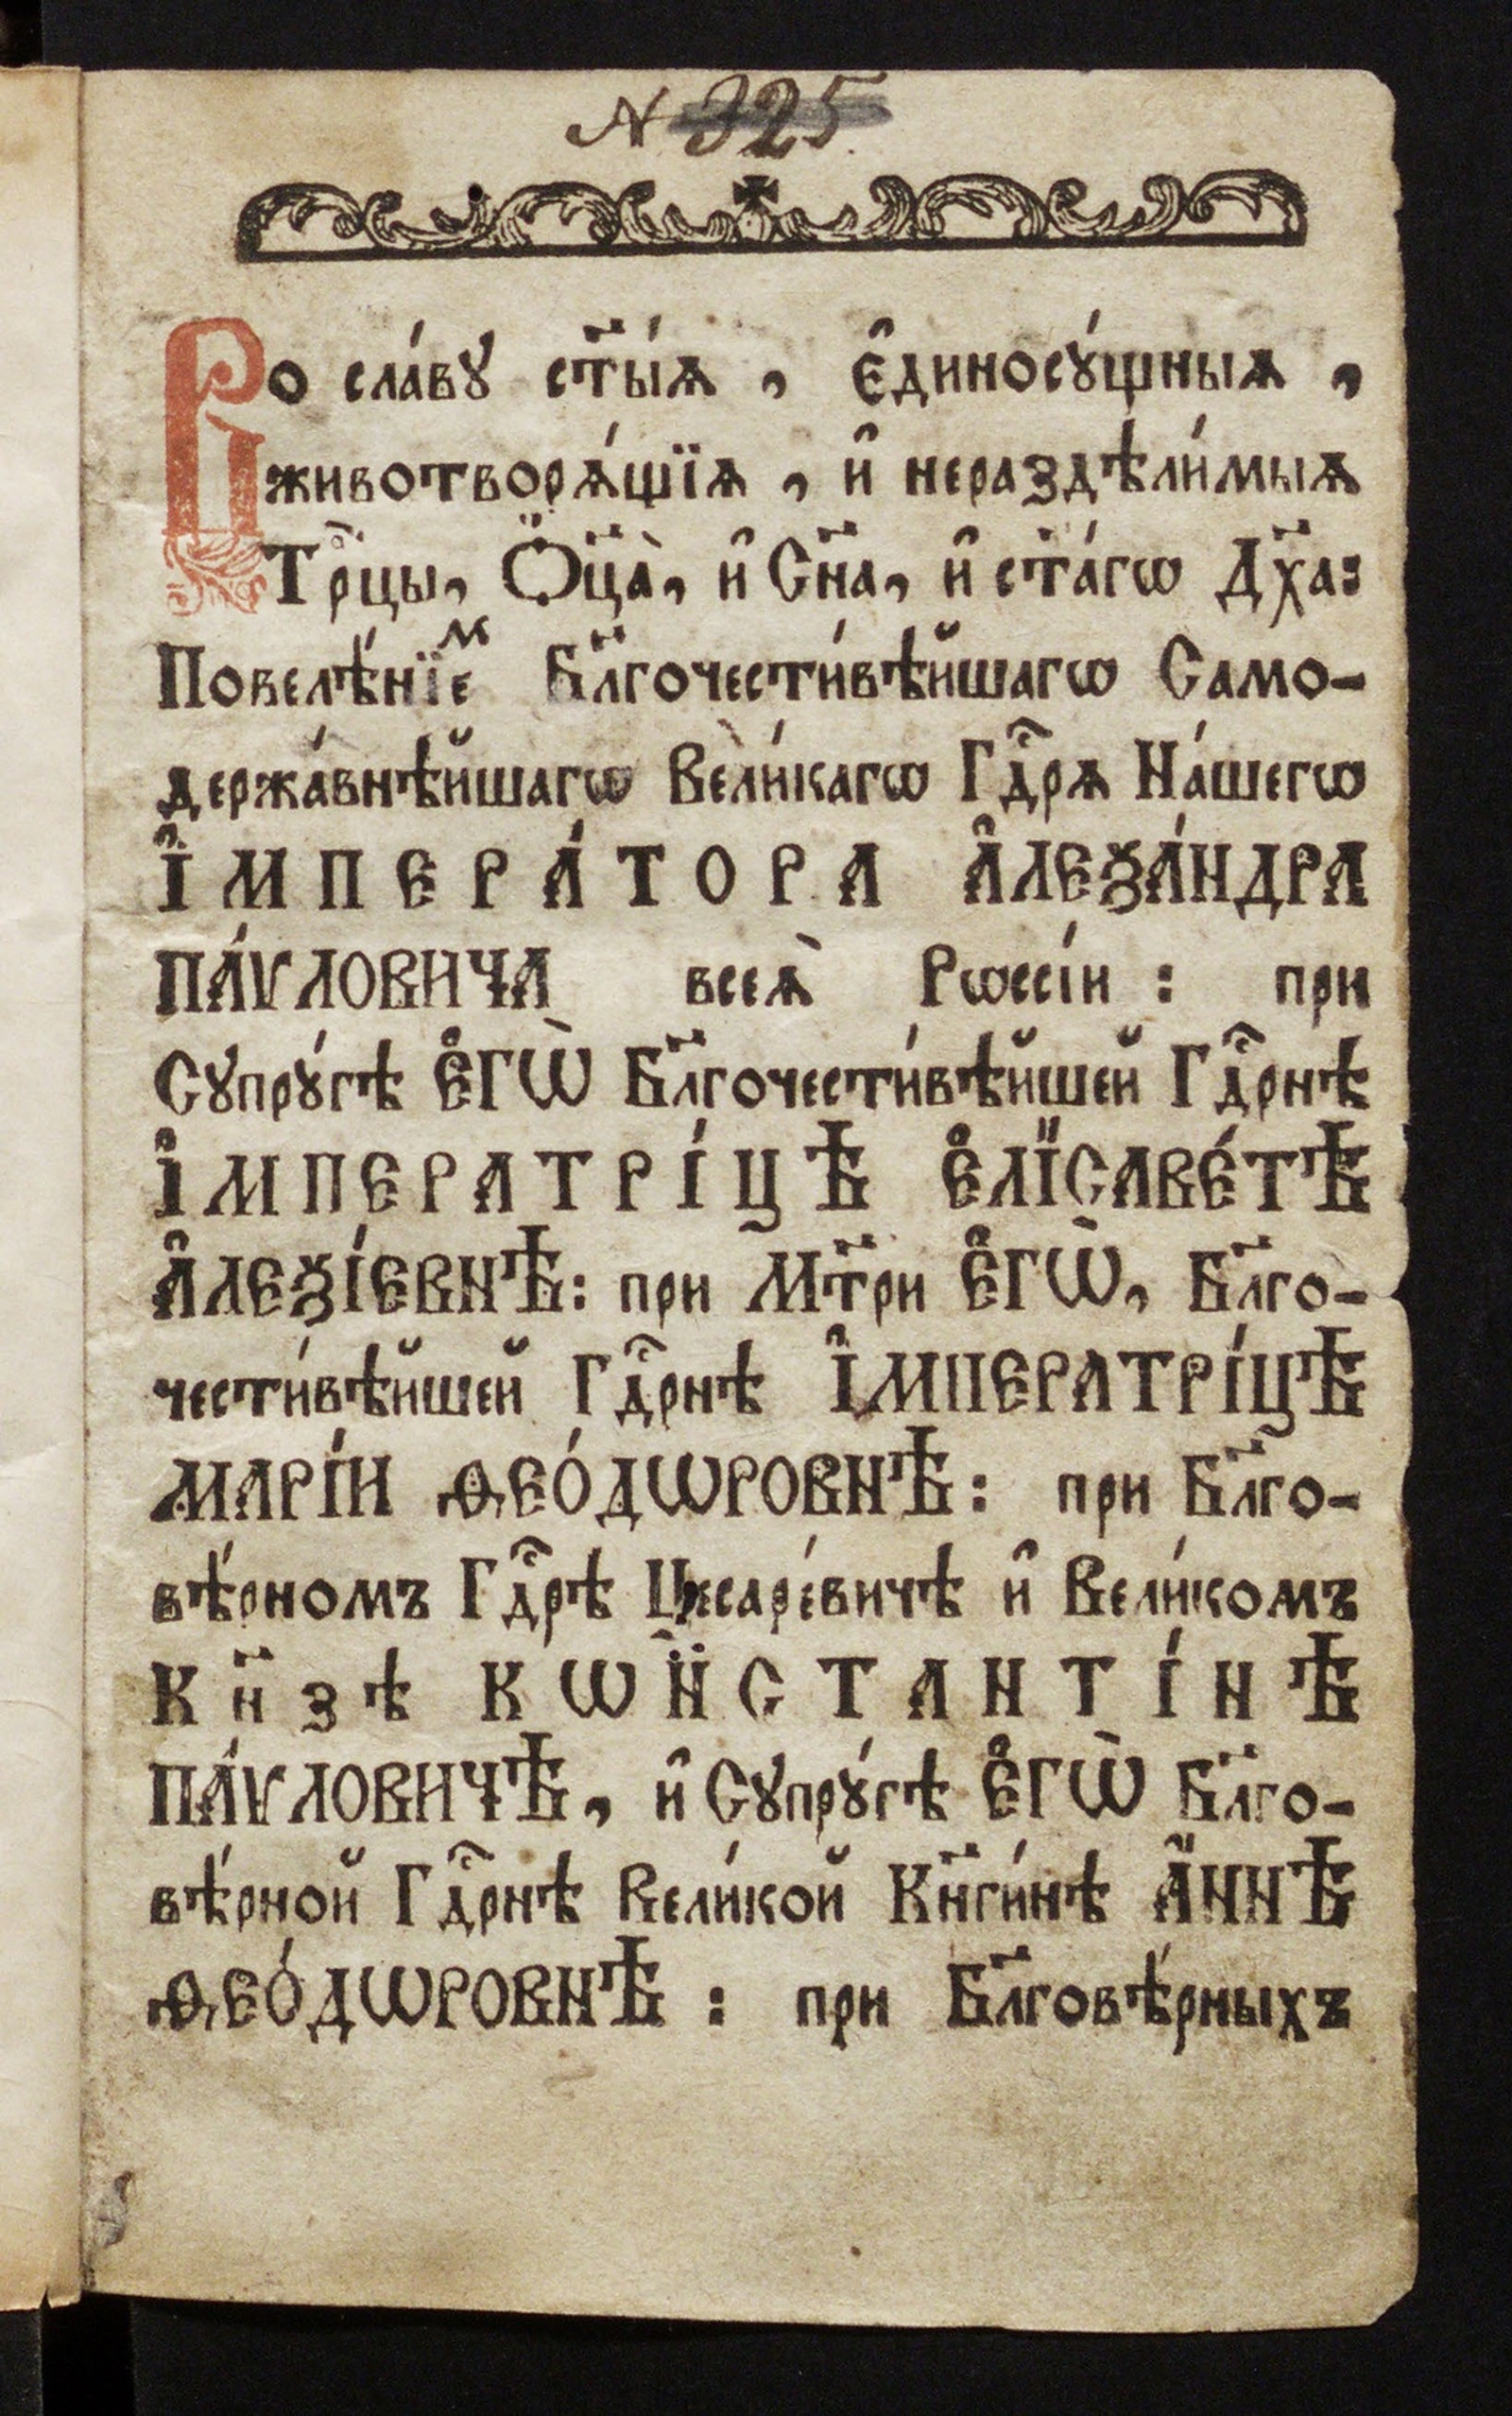 N 325
Во сла́вꙋ ст҃ы́ѧ, є҆диносꙋ́щныѧ,
животворѧ́щїѧ, и҆ нераздѣли́мыѧ
Трⷪ҇цы, Ѻ҆ц҃а̀, и҆ Сн҃а, и҆ ст҃а́гѡ Дх҃а:
Повелѣ́нїеⷨ Бл҃гочести́вѣйшагѡ Само-
держа́внѣйшагѡ Вели́кагѡ Гдⷭ҇рѧ На́шегѡ
І҆МПЕРА́ТОРА А҆ЛЕѮА́НДРА
ПА́ѴЛОВИЧА всеѧ̀ Рѡссі́и : при
Сꙋпрꙋ́гѣ Є҆ГѠ̀ Бл҃гочести́вѣйшей Гдⷭ҇рнѣ
І҆МПЕРАТРІ́ЦѢ Є҆ЛІСАВЕ́ТѢ
А҆ЛЕѮІ́ЕВНѢ: при Мт҃ри Є҆ГѠ̀, Бл҃го-
чести́вѣйшей Гдⷭ҇рнѣ І҆МПЕРАТРІ́ЦѢ
МАРІ́И ѲЕО́ДѠРОВНѢ: при Бл҃го-
вѣ́рномъ Гдⷭ҇рѣ Цесаре́вичѣ и҆ Вели́комъ
Кн҃зѣ КѠНСТАНТІ́НѢ
ПА́ѴЛОВИЧѢ, и҆ Сꙋпрꙋ́гѣ Є҆ГѠ̀ Бл҃го-
вѣ́рной Гдⷭ҇рнѣ Вели́кой Кн҃ги́нѣ А҆́ННѢ
ѲЕО́ДѠРОВНѢ : при Бл҃говѣ́рныхъ